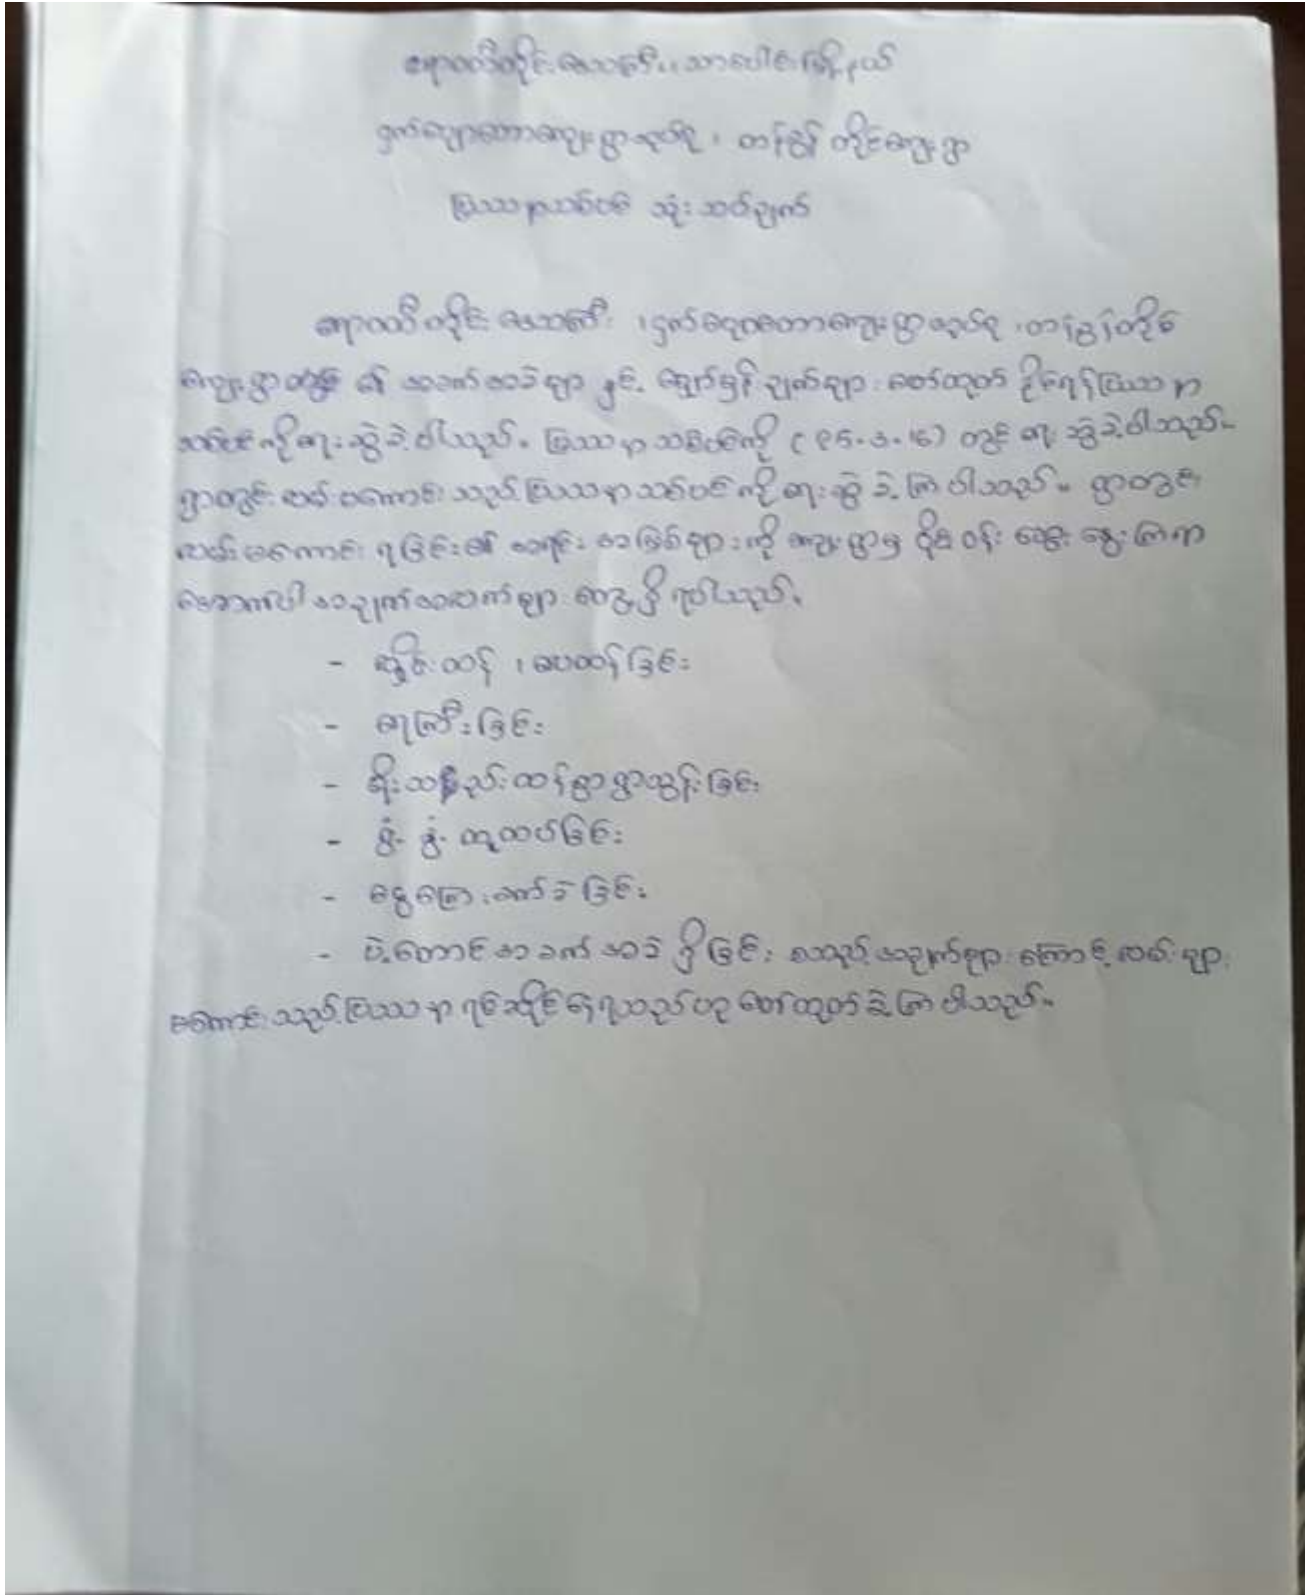 ဧရာဝတီတိုင်းဒေသကြီး၊ သာပေါင်းမြို့နယ်
ငှက်ပျောတောကျေးရွာအုပ်စု၊ တန်ခွန်တိုင်ကျေးရွာ
ပြဿနာသစ်ပင် သုံးသပ်ချက်
ဧရာဝတီတိုင်းဒေသကြီး ၊ငှက်ပျောတောကျေးရွာအုပ်စု ၊တန်ခွန်တိုင်
ကျေးရွာတွင် ၏ အခက်အခဲများ နှင့် မျှော်မှန်းချက်များ ဖော်ထုတ် နိုင်ရန်ပြဿနာ
သစ်ပင်ကိုရေးဆွဲခဲ့ပါသည်။ ပြဿနာသစ်ပင်ကို တွင် ရေးဆွဲခဲ့ပါသည်။
ရွာတွင်းလမ်းမကောင်းသည့်ပြဿနာသစ်ပင်ကိုရေးဆွဲခဲ့ကြပါသည်။ ရွာတွင်း
လမ်းမကောင်းရခြင်း၏ အရင်းအမြစ်များကို ကျေးရွာမှ ဝိုင်းဝန်းဆွေးနွေးကြရာ
အောက်ပါအချက်အလက်များ တွေ့ရှိရပါသည်။
- ခြင်း
- ရေကြီးခြင်း
- ခြင်း
- ရွှံ့ နွံ ထူထပ်ခြင်း
- ငွေကြေးခက်ခဲခြင်း
- အခက်အခဲရှိခြင်း စသည့်အချက်များကြောင့် လမ်းများ
မကောင်းသည့်ပြဿနာရင်ဆိုင်နေရသည်ဟု ဖော်ထုတ်ခဲ့ကြပါသည်။